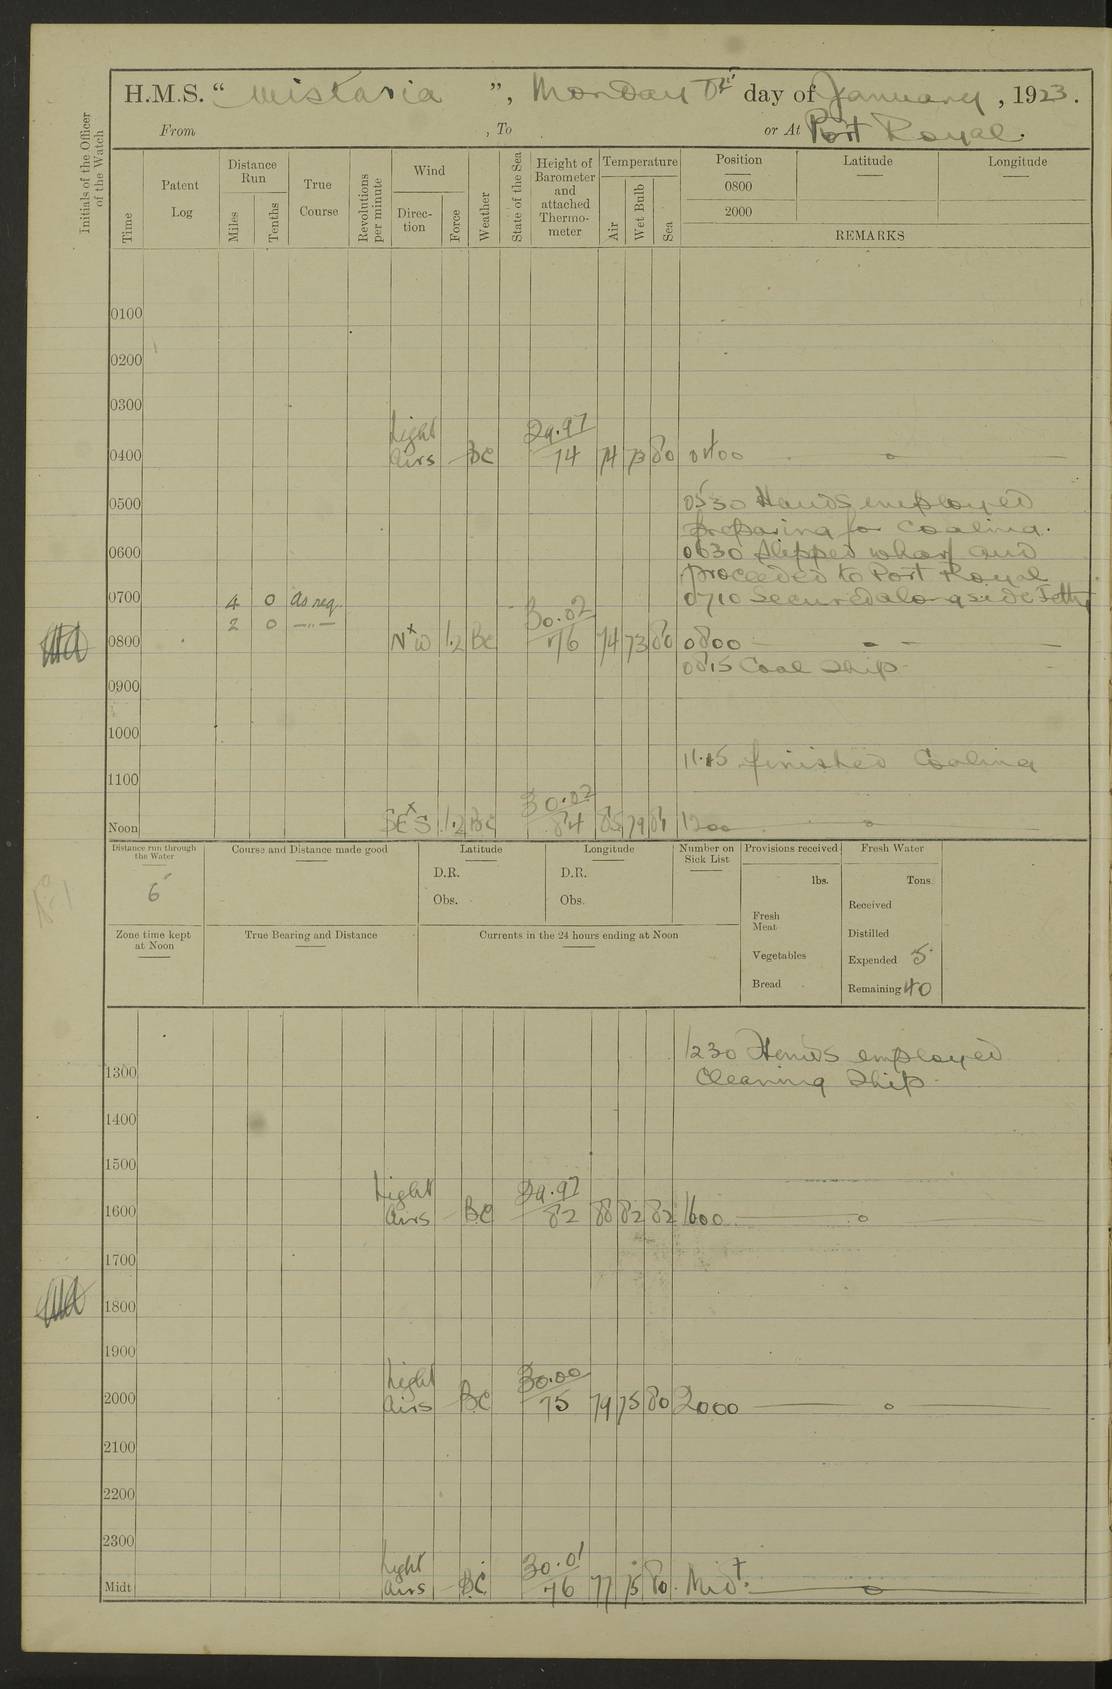 H.M.S. “ Wistaria ”, Monday 8th day of January, 1923.
From , To or At Port Royal.
Initials of the Officer of the Watch
Time
Patent Log
Distance Run
Miles
Tenths
True Course
Revolutions per minute
Wind
Direction
Force
Weather
State of the Sea
Height of Barometer and attached Thermometer
Temperature
Air
Wet Bulb
Sea
Position
0800
2000
Latitude
Longitude
REMARKS
0100
0200
0300
0400 Light Airs — BC 29.97 74 74 73 80 0400 — o —
0500 0530 Hands employed
preparing for coaling.
0600 0630 Slipped wharf and
proceeded to Port Royal
0700 4 0 As req. 0710 Secured alongside Jetty
2 0 —"—
0800 NxW 1.2 BC 30.02 76 74 73 80 0800 — —
0815 Coal Ship
0900
1000
11.15 finished Coaling
1100
Noon SExS 1.2 BC 30.02 84 85 79 81 1200 — o —
Distance run through the Water
6
Course and Distance made good
Latitude
D.R.
Obs.
Longitude
D.R.
Obs.
Number on Sick List
Provisions received
lbs.
Fresh Meat
Vegetables
Bread
Fresh Water
Tons
Received
Distilled
Expended 5
Remaining 40
Zone time kept at Noon
True Bearing and Distance
Currents in the 24 hours ending at Noon
No 1
1230 Hands employed
1300 Cleaning Ship.
1400
1500
1600 Light Airs — BC 29.97 82 88 82 82 1600 — o —
1700
1800
1900
2000 Light Airs — BC 30.00 75 79 75 80 2000 — o —
2100
2200
2300
Midt Light Airs — BC 30.01 76 77 75 80 Midt. — o —